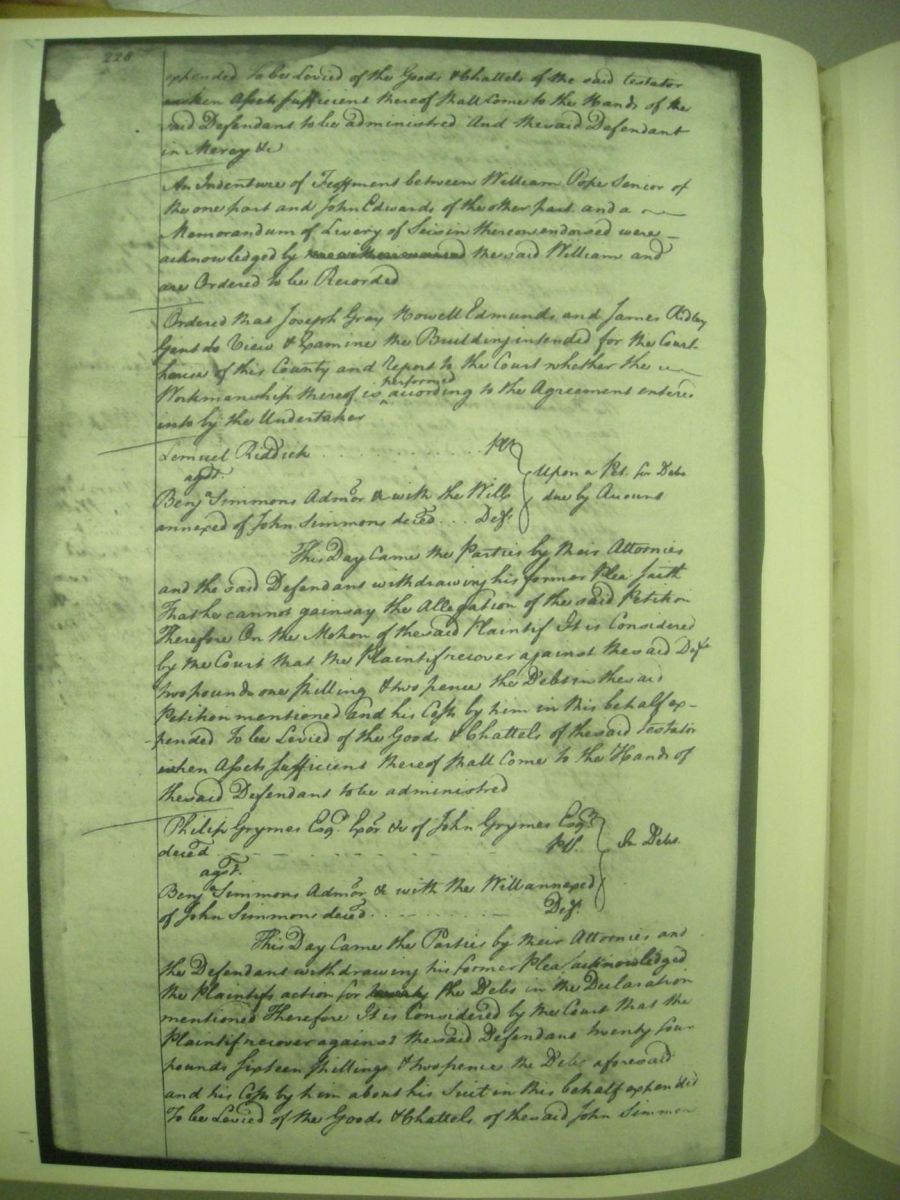 228
expended To be Levied of the Goods & Chattels of the said testator
when Assets sufficient thereof shall Come to the Hands of the
said Defendant to be administred And the said Defendant
in Mercy &c
An Indenture of Feoffment between William Pope Senior of
the one part and John Edwards of the other part and a
Memorandum of Livery of Seisin thereon endorsed were
acknowledged by the said William and
are Ordered to be Recorded
Ordered that Joseph Gray Howell Edmunds and James Ridley
Gent do View & Examine the Building intended for the Court
house of this County and report to the Court whether the
Workmanship thereof is performed according to the Agreement entered
into by the Undertaker
Lemuel Riddick Plt
agst
Benja Simmons Admor &c with the Will
annexed of John Simmons deced Deft
Upon a Pet. for Debt
due by Account
This Day Came the Parties by their Attornies
and the said Defendant withdrawing his former Plea saith
That he cannot gainsay the Allegation of the said Petition
Therefore On the Motion of the said Plaintif It is Considered
by the Court that the Plaintif recover against the said Deft
two pounds one shilling & two pence the Debt in the said
Petition mentioned and his Costs by him in this behalf ex-
pended To be Levied of the Goods & Chattels of the said testator
when Assets sufficient thereof shall Come to the Hands of
the said Defendant to be administred
Philip Grymes Esqr Exor &c of John Grymes Esqr
deced Plt.
agst.
Benja Simmons Admor &c with the Will annexed
of John Simmons deced Deft
In Debt
This Day Came the Parties by their Attornies and
the Defendant withdrawing his former Plea acknowledged
the Plaintifs action for the Debt in the Declaration
mentioned Therefore It is Considered by the Court that the
Plaintif recover against the said Defendant twenty four
pounds sixteen shillings & two pence the Debt aforesaid
and his Costs by him about his Suit in this behalf expended
To be Levied of the Goods & Chattels of the said John Simmons